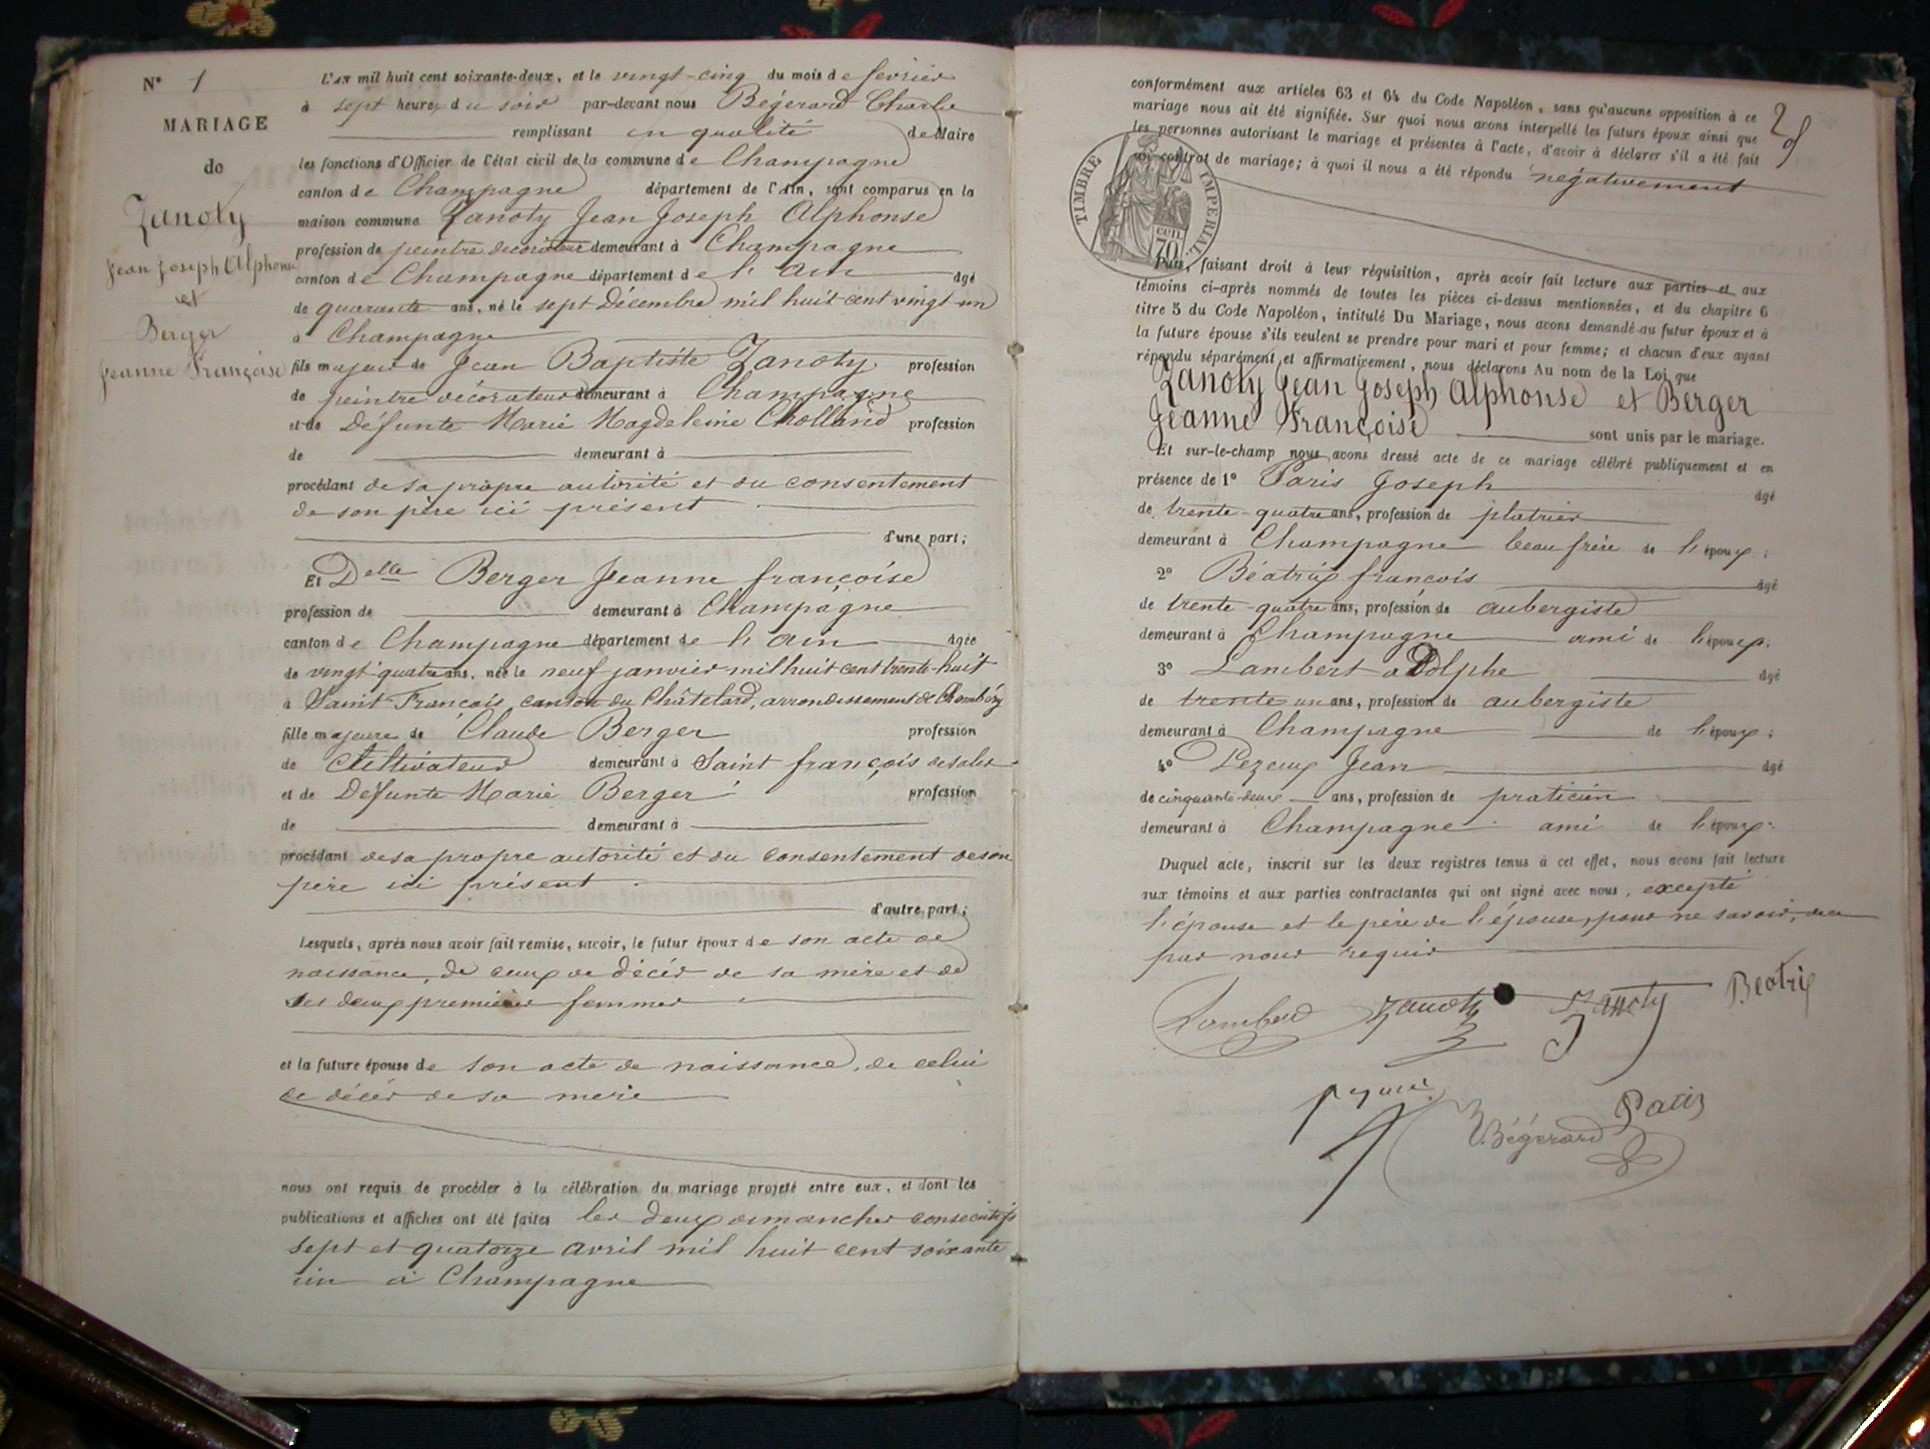 N° 1
MARIAGE
de
Zanoty
Jean Joseph Alphonse
et
Berger
Jeanne Françoise
L'AN mil huit cent soixante-deux, et le vingt-cinq du mois de fevrier
à sept heures du soir par-devant nous Bégerard Charles
remplissant en qualité de Maire
les fonctions d'Officier de l'état civil de la commune de Champagne
canton de Champagne département de l'Ain, sont comparus en la
maison commune Zanoty Jean Joseph Alphonse
profession de peintre decorateur demeurant à Champagne
canton de Champagne département de l'ain âgé
de quarante ans, né le sept Décembre mil huit cent vingt un
à Champagne
fils majeur de Jean Baptiste Zanoty profession
de peintre décorateur demeurant à Champagne
et de Défunte Marie Magdeleine Cholland profession
de demeurant à
procédant de sa propre autorité et du consentement
de son père ici présent
d'une part;
Et Delle Berger Jeanne françoise
profession de demeurant à Champagne
canton de Champagne département de l'ain âgée
de vingt quatre ans, née le neuf janvier mil huit cent trente-huit
à Saint François canton du Châtelard, arrondissement de Chambéry
fille majeure de Claude Berger profession
de Cultivateur demeurant à Saint françois de sales
et de Défunte Marie Berger profession
de demeurant à
procédant de sa propre autorité et du consentement de son
père ici présent
d'autre part;
Lesquels, après nous avoir fait remise, savoir, le futur époux de son acte de
naissance, de ceux de décès de sa mère et de
ses deux premières femmes
et la future épouse de son acte de naissance, de celui
de décès de sa mère
nous ont requis de procéder à la célébration du mariage projeté entre eux, et dont les
publications et affiches ont été faites les deux dimanches consécutifs
sept et quatorze avril mil huit cent soixante
un à Champagne
conformément aux articles 63 et 64 du Code Napoléon, sans qu'aucune opposition à ce
mariage nous ait été signifiée. Sur quoi nous avons interpellé les futurs époux ainsi que
les personnes autorisant le mariage et présentes à l'acte, d'avoir à déclarer s'il a été fait
un contrat de mariage; à quoi il nous a été répondu négativement
TIMBRE IMPÉRIAL
70
Puis, faisant droit à leur réquisition, après avoir fait lecture aux parties et aux
témoins ci-après nommés de toutes les pièces ci-dessus mentionnées, et du chapitre 6
titre 5 du Code Napoléon, intitulé Du Mariage, nous avons demandé au futur époux et à
la future épouse s'ils veulent se prendre pour mari et pour femme; et chacun d'eux ayant
répondu séparément et affirmativement, nous déclarons Au nom de la Loi que
Zanoty Jean Joseph Alphonse et Berger
Jeanne Françoise sont unis par le mariage.
Et sur-le-champ nous avons dressé acte de ce mariage célébré publiquement et en
présence de 1° Paris Joseph âgé
de trente-quatre ans, profession de platrier
demeurant à Champagne beau frère de l'époux;
2° Béatrix françois âgé
de trente-quatre ans, profession de aubergiste
demeurant à Champagne ami de l'époux;
3° Lambert adolphe âgé
de trente un ans, profession de aubergiste
demeurant à Champagne de l'époux;
4° Pezeux Jean âgé
de cinquante-deux ans, profession de praticien
demeurant à Champagne ami de l'époux.
Duquel acte, inscrit sur les deux registres tenus à cet effet, nous avons fait lecture
aux témoins et aux parties contractantes qui ont signé avec nous, excepté
l'épouse et le père de l'épouse, pour ne savoir, de ce
par nous requis
Lambert Zanoty Zanoty Béatrix
Paris
Bégerard